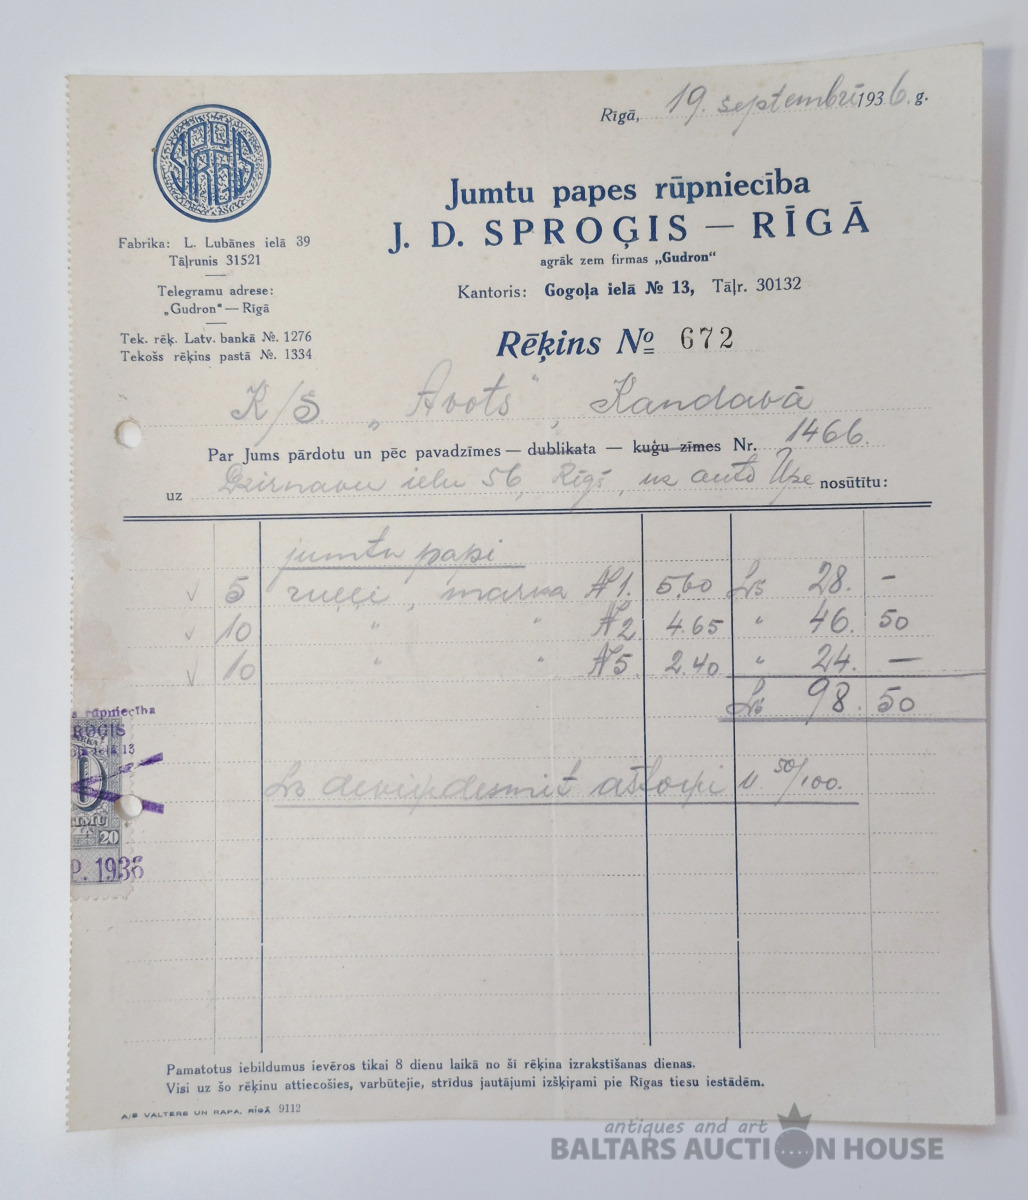 Rīgā, 19. septembrī 1936. g.
SPROĢIS
Jumtu papes rūpniecība
J. D. SPROĢIS — RĪGĀ
agrāk zem firmas „Gudron“
Kantoris: Gogoļa ielā № 13, Tāļr. 30132
Fabrika: L. Lubānes ielā 39
Tāļrunis 31521
Telegramu adrese:
„Gudron“ — Rīgā
Tek. rēķ. Latv. bankā №. 1276
Tekošs rēķins pastā №. 1334
Rēķins № 672
K/S „Avots“, Kandavā
Par Jums pārdotu un pēc pavadzīmes — dublikata — kuģu zīmes Nr. 1466.
uz Dzirnavu ielu 56, Rīgā, uz auto nosūtītu:
jumtu papi
5 ruļļi, marka № 1. 5.60 Ls 28. —
10 " " № 2 4.65 " 46. 50
10 " " № 5 2.40 " 24. —
Ls 98. 50
Ls deviņdesmit astoņi u 50/100.
s rūpniecība
ROĢIS
ielā 13
20
P. 1936
Pamatotus iebildumus ievēros tikai 8 dienu laikā no šī rēķina izrakstīšanas dienas.
Visi uz šo rēķinu attiecošies, varbūtejie, strīdus jautājumi izšķirami pie Rīgas tiesu iestādēm.
A/S VALTERS UN RAPA, RĪGĀ 9112
antiques and art
BALTARS AUCTION HOUSE